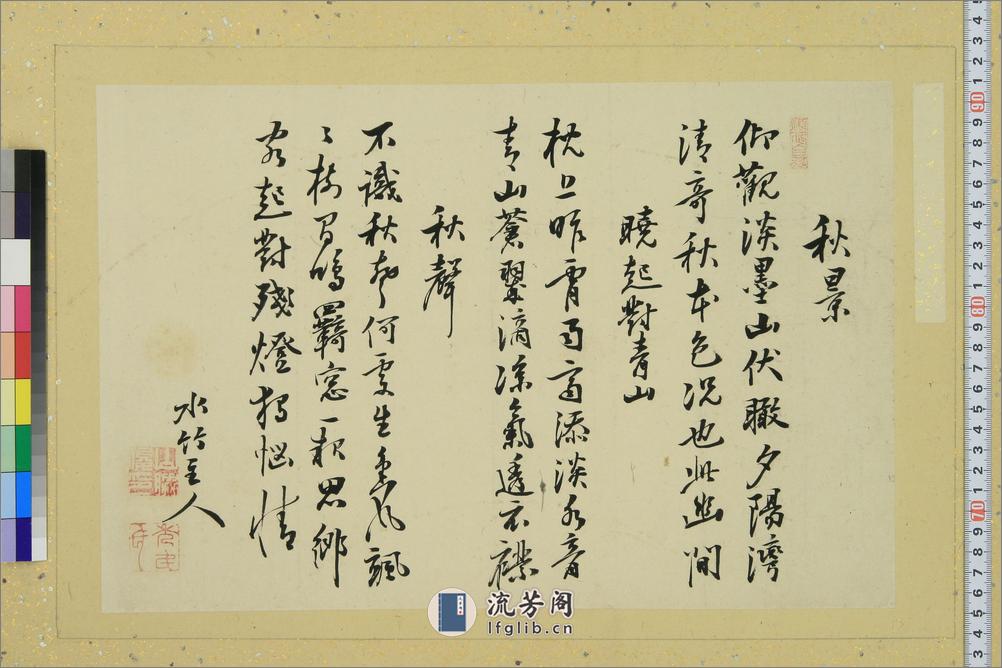 秋景
仰觀淡墨山伏瞰夕陽灣
清奇秋本色況也此幽間
曉起對青山
枕上昨宵雨高添淡水音
青山蒼翠滴涼氣透衣襟
秋聲
不識秋聲何處生金風颯
〻樹間鳴羈窓一枕思鄉
客起對殘燈獨惱情
水竹主人
流芳阁
lfglib.cn